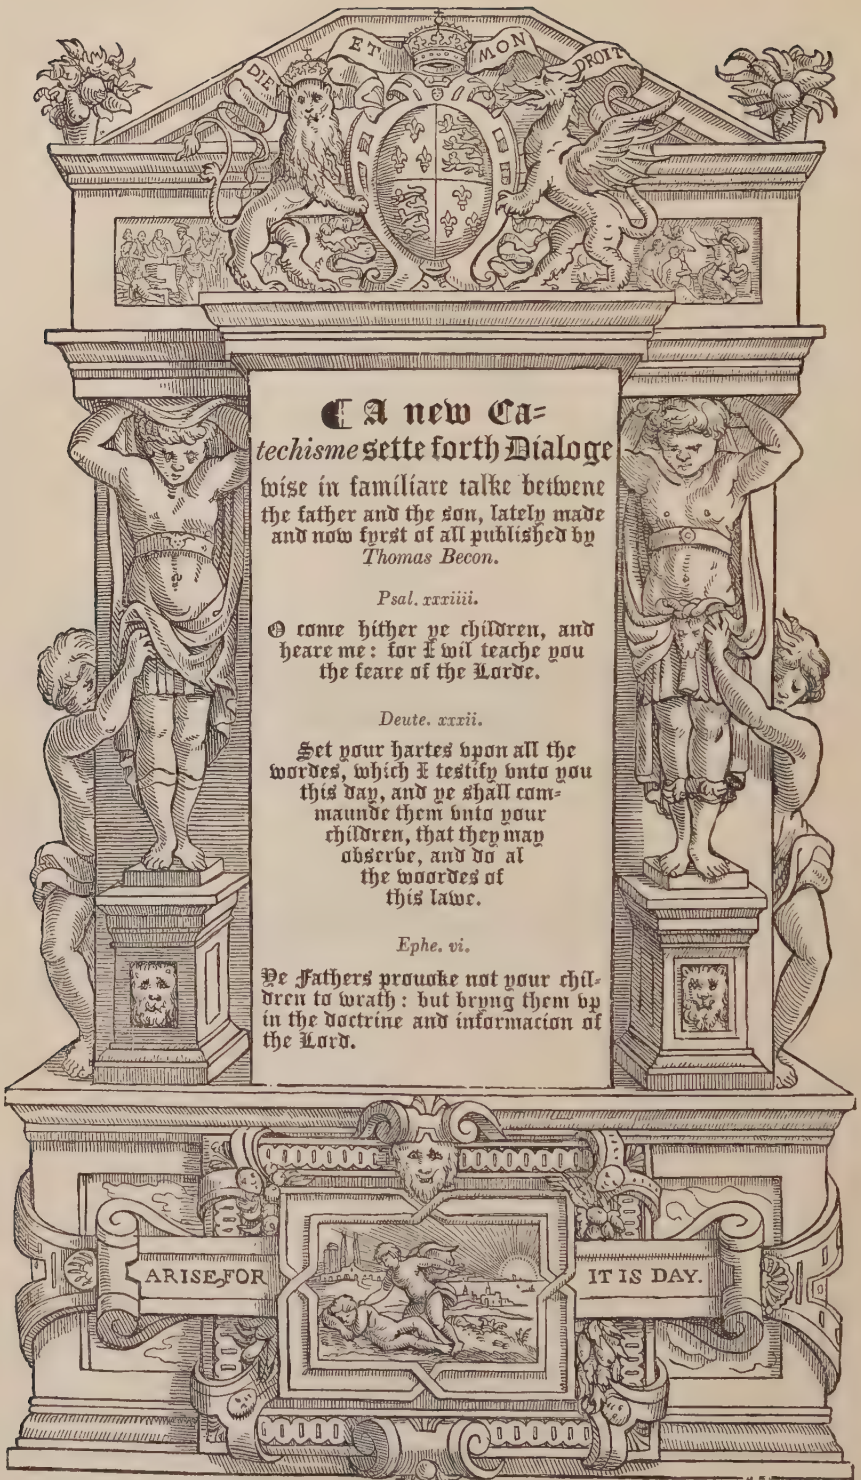 DIEV ET MON DROIT
☾ A new Ca=
techisme sette forth Dialoge
wise in familiare talke betwene
the father and the son, lately made
and now fyrst of all published by
Thomas Becon.
Psal. xxxiiii.
O come hither ye children, and
heare me : for I wil teache you
the feare of the Lorde.
Deute. xxxii.
Set your hartes vpon all the
wordes, which I testify vnto you
this day, and ye shall com=
maunde them vnto your
children, that they may
observe, and do al
the woordes of
this lawe.
Ephe. vi.
Ye Fathers prouoke not your chil=
dren to wrath : but bryng them vp
in the doctrine and informacion of
the Lord.
ARISE, FOR IT IS DAY.